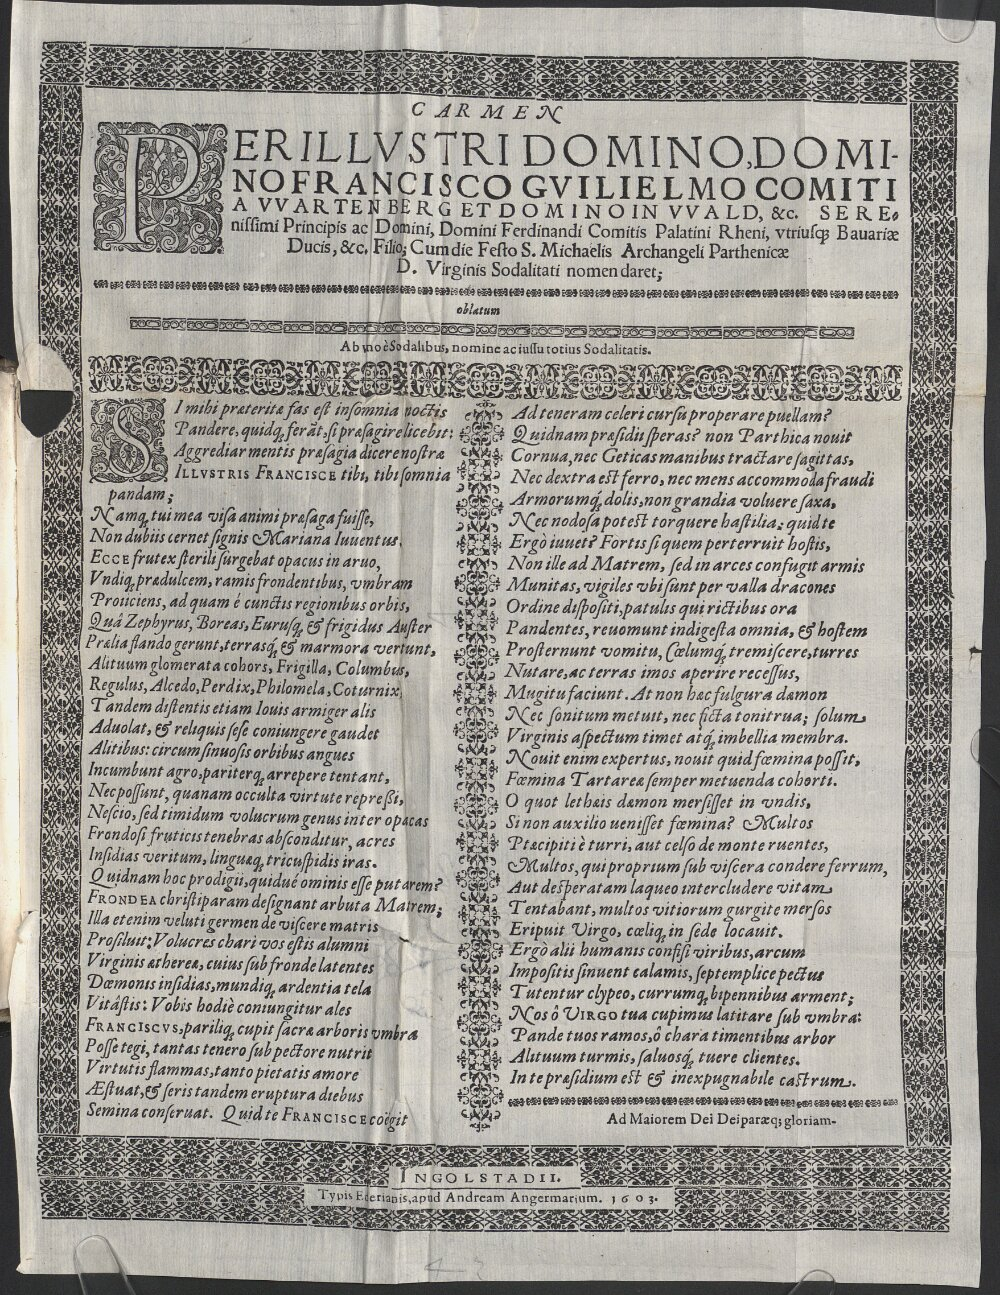 CARMEN
PERILLVSTRI DOMINO, DOMI-
NO FRANCISCO GVILIELMO COMITI
A VVARTENBERG ET DOMINO IN VVALD, &c. SERE-
nissimi Principis ac Domini, Domini Ferdinandi Comitis Palatini Rheni, vtriusq; Bauariæ
Ducis, &c. Filio; Cum die Festo S. Michaëlis Archangeli Parthenicæ
D. Virginis Sodalitati nomen daret;
oblatum
Ab vno è Sodalibus, nomine ac iussu totius Sodalitatis.
SI mihi præteritæ fas est insomnia noctis
Pandere, quidq; ferãt, si præsagire licebit:
Aggrediar mentis præsagia dicere nostræ
ILLVSTRIS FRANCISCE tibi, tibi somnia
pandam;
Namq; tui mea visa animi præsaga fuisse,
Non dubiis cernet signis Mariana Iuuentus.
ECCE frutex sterili surgebat opacus in aruo,
Vndiq; prædulcem, ramis frondentibus, vmbram
Proiiciens, ad quam é cunctis regionibus orbis,
Quá Zephyrus, Boreas, Eurusq; & frigidus Auster
Prælia flando gerunt, terrasq; & marmora vertunt,
Alituum glomerata cohors, Frigilla, Columbus,
Regulus, Alcedo, Perdix, Philomela, Coturnix,
Tandem distentis etiam Iouis armiger alis
Aduolat, & reliquis sese coniungere gaudet
Alitibus: circum sinuosis orbibus angues
Incumbunt agro, pariterq; arrepere tentant,
Nec possunt, quanam occulta virtute repreßi,
Nescio, sed timidum volucrum genus inter opacas
Frondosi fruticis tenebras absconditur, acres
Insidias veritum, linguæq; tricuspidis iras.
Quidnam hoc prodigii, quidué ominis esse putarem?
FRONDEA christiparam designant arbuta Matrem;
Illa etenim veluti germen de viscere matris
Prosiluit: Volucres chari vos estis alumni
Virginis æthereæ, cuius sub fronde latentes
Dæmonis insidias, mundiq; ardentia tela
Vitástis: Vobis hodiè coniungitur ales
FRANCISCVS, pariliq; cupit sacræ arboris vmbra
Posse tegi, tantas tenero sub pectore nutrit
Virtutis flammas, tanto pietatis amore
Æstuat, & seris tandem eruptura diebus
Semina conseruat. Quid te FRANCISCE coëgit
Ad teneram celeri cursu properare puellam?
Quidnam præsidii speras? non Parthica nouit
Cornua, nec Geticas manibus tractare sagittas,
Nec dextra est ferro, nec mens accommoda fraudi
Armorumq; dolis, non grandia voluere saxa,
Nec nodosa potest torquere hastilia; quid te
Ergò iuuet? Fortis si quem perterruit hostis,
Non ille ad Matrem, sed in arces confugit armis
Munitas, vigiles vbi sunt per valla dracones
Ordine dispositi, patulis qui rictibus ora
Pandentes, reuomunt indigesta omnia, & hostem
Prosternunt vomitu, Cœlumq; tremiscere, turres
Nutare, ac terras imos aperire recessus,
Mugitu faciunt. At non hæc fulgura dæmon
Nec sonitum metuit, nec ficta tonitrua; solum
Virginis aspectum timet atq; imbellia membra.
Nouit enim expertus, nouit quid fœmina possit,
Fœmina Tartareæ semper metuenda cohorti.
O quot lethæis dæmon mersisset in vndis,
Si non auxilio uenisset fœmina? Multos
Præcipiti è turri, aut celso de monte ruentes,
Multos, qui proprium sub viscera condere ferrum,
Aut desperatam laqueo intercludere vitam
Tentabant, multos vitiorum gurgite mersos
Eripuit Virgo, cœliq; in sede locauit.
Ergò alii humanis confisi viribus, arcum
Impositis sinuent calamis, septemplice pectus
Tutentur clypeo, currumq; bipennibus arment;
Nos ô VIRGO tua cupimus latitare sub vmbra:
Pande tuos ramos, ô chara timentibus arbor
Alituum turmis, saluosq; tuere clientes.
In te præsidium est & inexpugnabile castrum.
Ad Maiorem Dei Deiparæq; gloriam.
INGOLSTADII.
Typis Ederianis, apud Andream Angermarium. 1603.